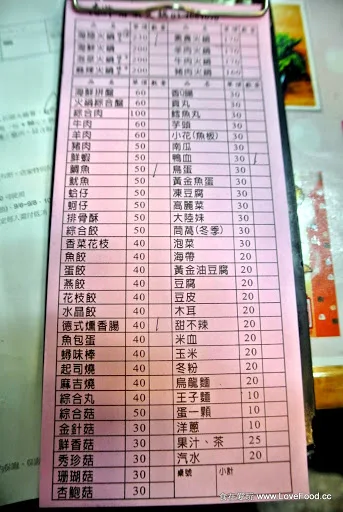 品 名 單價 數量 品 名 單價 數量
火鍋 200 火鍋 170
海鮮火鍋 羊肉火鍋 170
火鍋 牛肉火鍋
麻辣火鍋 豬肉火鍋 160
品 名 單價 數量 品 名 單價 數量
海鮮拼盤 60 香Q腸 30
火鍋綜合盤 60 貢丸 30
綜合肉 100 鱈魚丸 30
牛肉 60 芋頭 30
羊肉 60 小花(魚板) 30
豬肉 50 南瓜 30
鮮蝦 50 鴨血 30
鯛魚 50 鳥蛋 30
魷魚 50 黃金魚蛋 30
蛤仔 50 凍豆腐 30
蚵仔 50 高麗菜 30
排骨酥 50 大陸妹 30
綜合餃 50 茼萵(冬季) 30
香菜花枝 40 泡菜 30
魚餃 40 海帶 20
蛋餃 40 黃金油豆腐 20
燕餃 40 豆腐 20
花枝餃 40 豆皮 20
水晶餃 40 木耳 20
德式燻香腸 40 甜不辣 20
魚包蛋 40 米血 20
蟳味棒 40 玉米 20
起司燒 40 冬粉 20
麻吉燒 40 烏龍麵 20
綜合丸 40 王子麵 10
綜合菇 50 蛋一顆 10
金針菇 30 洋蔥 10
鮮香菇 30 果汁、茶 25
秀珍菇 30 汽水 20
珊瑚菇 30 桌號 小計
杏鮑菇 30
www.LoveFood.cc